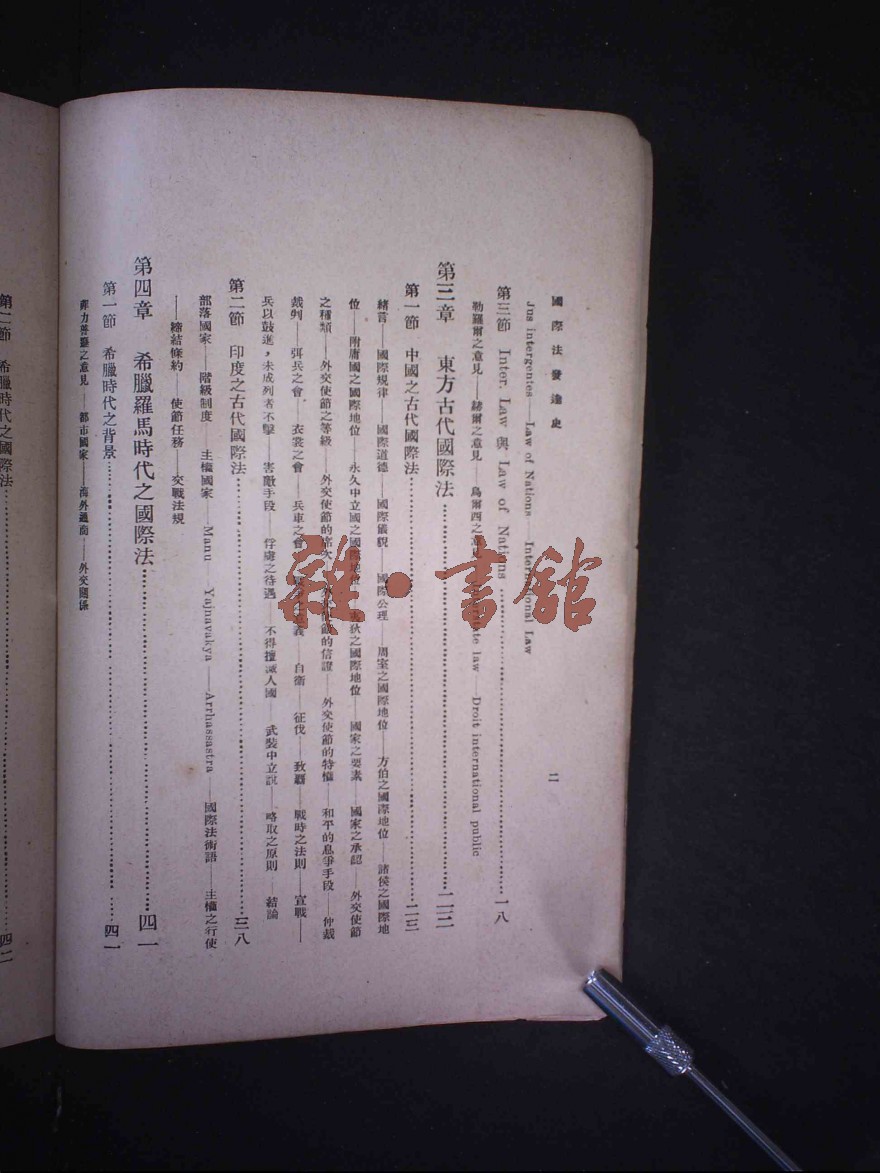 國際法發達史
二
Jus intergentes——Law of Nations——International Law
第三節 Inter. Law 與 Law of Nations……一八
勒羅爾之意見——赫爾之意見——烏爾西之意見——law——Droit international public
第三章 東方古代國際法……二三
第一節 中國之古代國際法……二三
緒言——國際規律——國際道德——國際儀貌——國際公理——周室之國際地位——方伯之國際地位——諸侯之國際地
位——附庸國之國際地位——永久中立國之國際地位——夷狄之國際地位——國家之要素——國家之承認——外交使節
之種類——外交使節之等級——外交使節的席次——外交使節的信證——外交使節的特權——和平的息爭手段——仲裁
裁列——弭兵之會——衣裳之會——兵車之會——自衛——征伐——致霸——戰時之法則——宣戰——
兵以鼓進，未成列者不擊——害敵手段——俘虜之待遇——不得擅滅人國——武裝中立說——略取之原則——結論
第二節 印度之古代國際法……三八
部落國家——階級制度——主權國家——Manu——Yajnavakya——Arrhassastra——國際法術語——主權之行使
——締結條約——使節任務——交戰法規
第四章 希臘羅馬時代之國際法……四一
第一節 希臘時代之背景……四一
菲力普遜之意見——都市國家——海外通商——外交關係
第二節 希臘時代之國際法……四二
雜·書館